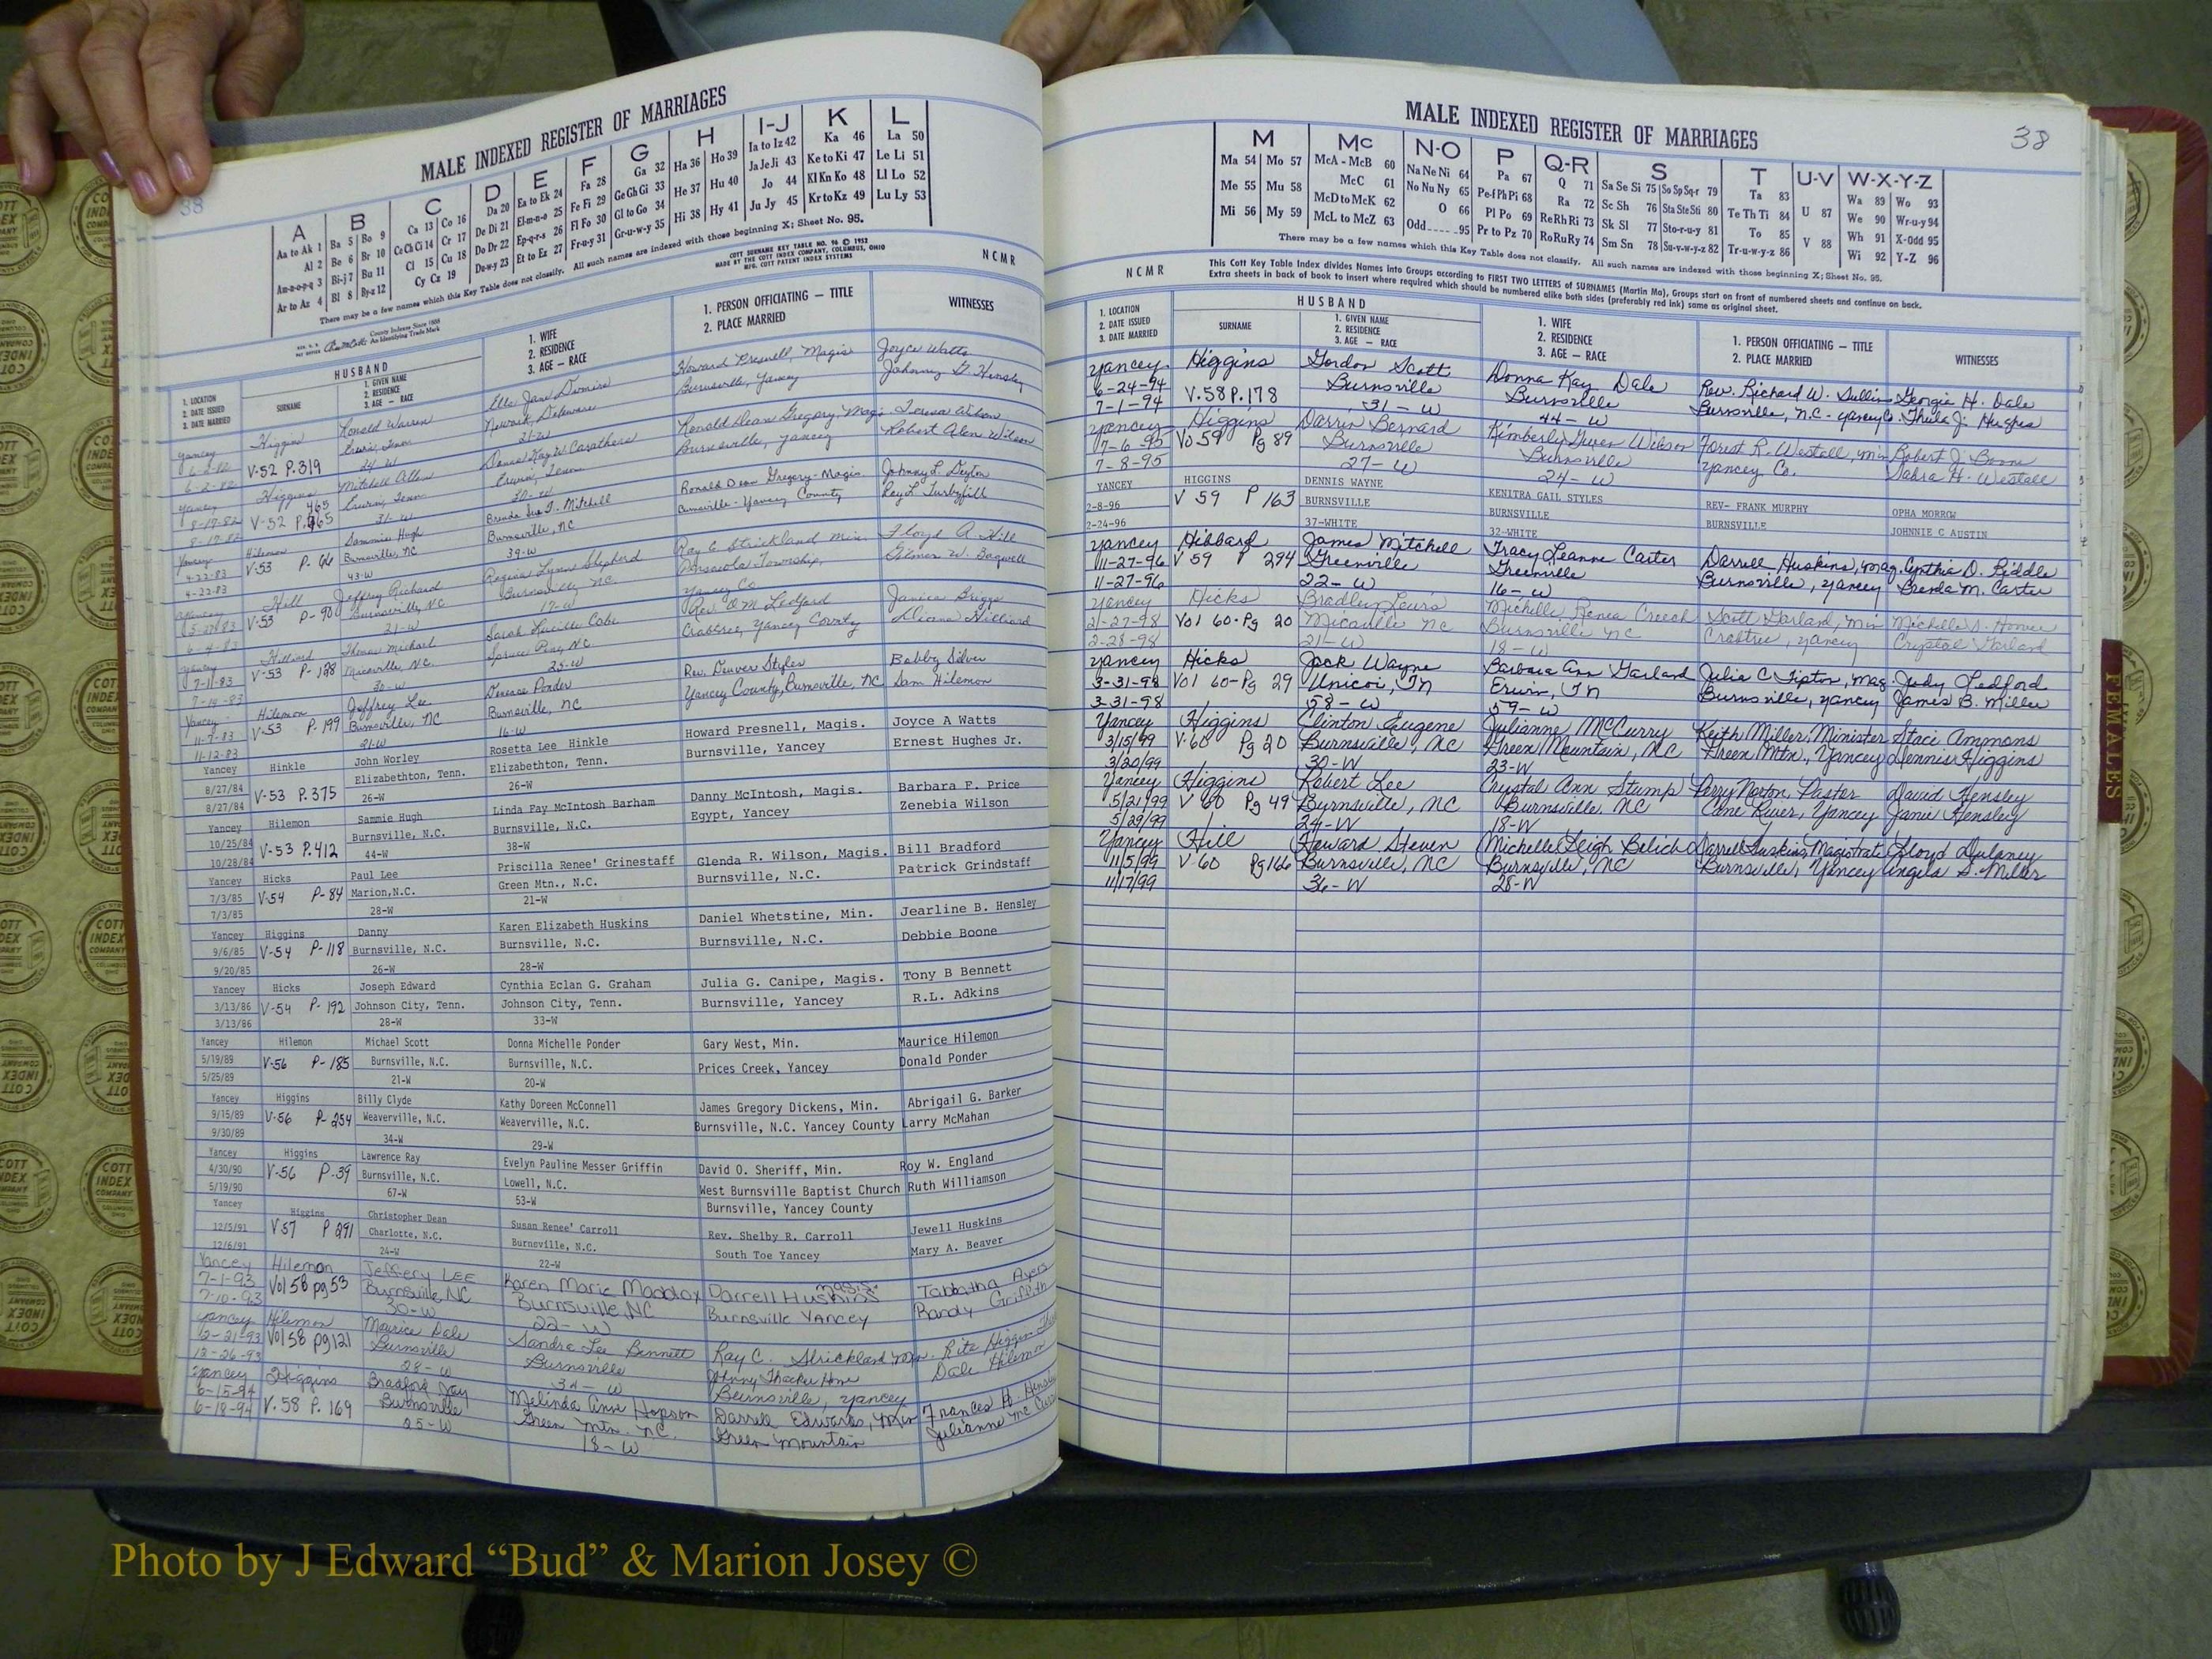 MALE INDEXED REGISTER OF MARRIAGES
38
A B C D E F G H I-J K L
Aa to Ak 1 Ba 5 Bo 9 Ca 13 Co 16 Da 20 Ea to Ek 24 Fa 28 Ga 32 Ha 36 Ho 39 Ia to Iz 42 Ka 46 La 50
Al 2 Be 6 Br 10 Ce Ch Ci 14 Cr 17 De Di 21 El-m-n-o 25 Fe Fi 29 Ge Gh Gi 33 He 37 Hu 40 Ja Je Ji 43 Ke to Ki 47 Le Li 51
Am-n-o-p-q 3 Bi-j 7 Bu 11 Cl 15 Cu 18 Do Dr 22 Ep-q-r-s 26 Fl Fo 30 Gl to Go 34 Hi 38 Hy 41 Jo 44 Kl Kn Ko 48 Ll Lo 52
Ar to Az 4 Bl 8 By-z 12 Cy Cz 19 Du-w-y 23 Et to Ez 27 Fr-u-y 31 Gr-u-w-y 35 Ju Jy 45 Kr to Kz 49 Lu Ly 53
There may be a few names which this Key Table does not classify. All such names are indexed with those beginning X; Sheet No. 95.
COTT SURNAME KEY TABLE NO. 96 © 1952
MADE BY THE COTT INDEX COMPANY, COLUMBUS, OHIO
MFG. COTT PATENT INDEX SYSTEMS
NCMR
County Indexes Since 1888
An Identifying Trade Mark
HUSBAND
1. LOCATION
2. DATE ISSUED
3. DATE MARRIED
SURNAME
1. GIVEN NAME
2. RESIDENCE
3. AGE — RACE
1. WIFE
2. RESIDENCE
3. AGE — RACE
1. PERSON OFFICIATING — TITLE
2. PLACE MARRIED
WITNESSES
Yancey Higgins Ronald Warren Ella Jane Howard Presnell, Magis Joyce Watts
V-52 P.319 Newark, Delaware Burnsville, Yancey Johnny G. Hensley
6-2-82 24 W 21-W
Yancey Higgins Mitchell Allen Ronald Dean Gregory, Mag. Teresa Wilson
8-17-82 V-52 P.465 Erwin, Tenn Burnsville, Yancey Robert Alen Wilson
8-17-82 31-W 30-W
Yancey Hilemon Sammie Hugh Brenda Sue T. Mitchell Ronald Dean Gregory-Magis Johnny L. Deyton
4-22-83 V-53 P-66 Burnsville, NC Burnsville, NC Burnsville-Yancey County Roy L. Turbyfill
4-22-83 43-W 39-W
Yancey Hill Jeffrey Richard Regina Lynn Shepherd Ray C Strickland Min Floyd A. Hill
5-27-83 V-53 P-90 Burnsville, NC Burnsville, NC. Pensacola Township,
6-4-83 21-W Yancey Co
Yancey Hilliard Thomas Michael Sarah Lucille Cobe Rev. O.M. Ledford Janice Briggs
7-11-83 V-53 P-128 Micaville, NC. Spruce Pine, NC. Crabtree, Yancey County Dianna Hilliard
7-14-83 30-W 25-W
Yancey Hilemon Jeffrey Lee Denease Ponder Rev. Denver Styles Bobby Silver
11-7-83 V-53 P-199 Burnsville, NC Burnsville, NC Yancey County, Burnsville, NC Sam Hilemon
11-12-83 21-W 16-W
Yancey Hinkle John Worley Rosetta Lee Hinkle Howard Presnell, Magis. Joyce A Watts
8/27/84 V-53 P.375 Elizabethton, Tenn. Elizabethton, Tenn. Burnsville, Yancey Ernest Hughes Jr.
8/27/84 26-W 26-W
Yancey Hilemon Sammie Hugh Linda Fay McIntosh Barham Danny McIntosh, Magis. Barbara F. Price
10/25/84 V-53 P.412 Burnsville, N.C. Burnsville, N.C. Egypt, Yancey Zenebia Wilson
10/28/84 44-W 38-W
Yancey Hicks Paul Lee Priscilla Renee' Grinestaff Glenda R. Wilson, Magis. Bill Bradford
7/3/85 V-54 P-84 Marion,N.C. Green Mtn., N.C. Burnsville, N.C. Patrick Grindstaff
7/3/85 28-W 21-W
Yancey Higgins Danny Karen Elizabeth Huskins Daniel Whetstine, Min. Jearline B. Hensley
9/6/85 V-54 P-118 Burnsville, N.C. Burnsville, N.C. Burnsville, N.C. Debbie Boone
9/20/85 26-W 28-W
Yancey Hicks Joseph Edward Cynthia Eclan G. Graham Julia G. Canipe, Magis. Tony B Bennett
3/13/86 V-54 P-192 Johnson City, Tenn. Johnson City, Tenn. Burnsville, Yancey R.L. Adkins
3/13/86 28-W 33-W
Yancey Hilemon Michael Scott Donna Michelle Ponder Gary West, Min. Maurice Hilemon
5/19/89 V-56 P-185 Burnsville, N.C. Burnsville, N.C. Prices Creek, Yancey Donald Ponder
5/25/89 21-W 20-W
Yancey Higgins Billy Clyde Kathy Doreen McConnell James Gregory Dickens, Min. Abrigail G. Barker
9/15/89 V-56 P-254 Weaverville, N.C. Weaverville, N.C. Burnsville, N.C. Yancey County Larry McMahan
9/30/89 34-W 29-W
Yancey Higgins Lawrence Ray Evelyn Pauline Messer Griffin David O. Sheriff, Min. Roy W. England
4/30/90 V-56 P.39 Burnsville, N.C. Lowell, N.C. West Burnsville Baptist Church Ruth Williamson
5/19/90 67-W 53-W Burnsville, Yancey County
Yancey Higgins Christopher Dean Susan Renee' Carroll Rev. Shelby R. Carroll Jewell Huskins
12/5/91 V57 P 291 Charlotte, N.C. Burnsville, N.C. South Toe Yancey Mary A. Beaver
12/6/91 24-W 22-W
Yancey Hilemon Jeffery LEE Karen Marie Maddox Darrell Huskins magis. Tabbatha Ayers
7-1-93 Vol 58 pg 53 Burnsville NC Burnsville, NC Burnsville YANCEY Randy Griffith
7-10-93 30-W 22-W
Yancey Hilemon Maurice Dale Sandra Lee Bennett Ray C. Strickland Min. Rita Higgins
12-21-93 Vol 58 pg 121 Burnsville Burnsville Johnny Thacker Home Dale Hilemon
12-26-93 28-W 34-W Burnsville, Yancey
Yancey Higgins Bradford Jay Melinda Ann Hopson Darrell Edwards, Min Frances H.
6-15-94 V. 58 P. 169 Burnsville Green Mtn. NC. Green Mountain Julianne
6-18-94 25-W 18-W
MALE INDEXED REGISTER OF MARRIAGES
38
M Mc N-O P Q-R S T U-V W-X-Y-Z
Ma 54 Mo 57 McA - McB 60 Na Ne Ni 64 Pa 67 Q 71 Sa Se Si 75 So Sp Sq-r 79 Ta 83 U 87 Wa 89 Wo 93
Me 55 Mu 58 McC 61 No Nu Ny 65 Pe-f Ph Pi 68 Ra 72 Sc Sh 76 Sta Ste Sti 80 Te Th Ti 84 V 88 We 90 Wr-u-y 94
Mi 56 My 59 McD to McK 62 O 66 Pl Po 69 Re Rh Ri 73 Sk Sl 77 Sto-r-u-y 81 To 85 Wh 91 X-Odd 95
McL to McZ 63 Odd 95 Pr to Pz 70 Ro Ru Ry 74 Sm Sn 78 Su-v-w-y-z 82 Tr-u-w-y-z 86 Wi 92 Y-Z 96
There may be a few names which this Key Table does not classify. All such names are indexed with those beginning X; Sheet No. 95.
NCMR
This Cott Key Table Index divides Names into Groups according to FIRST TWO LETTERS of SURNAMES (Martin Ma), Groups start on front of numbered sheets and continue on back.
Extra sheets in back of book to insert where required which should be numbered alike both sides (preferably red ink) same as original sheet.
HUSBAND
1. LOCATION
2. DATE ISSUED
3. DATE MARRIED
SURNAME
1. GIVEN NAME
2. RESIDENCE
3. AGE — RACE
1. WIFE
2. RESIDENCE
3. AGE — RACE
1. PERSON OFFICIATING — TITLE
2. PLACE MARRIED
WITNESSES
Yancey Higgins Gordon Scott Donna Kay Dale Rev. Richard W. Georgia H. Dale
6-24-94 V.58 P.178 Burnsville Burnsville Burnsville, N.C - Yancey Co. Thula J. Hughes
7-1-94 31-W 44-W
Yancey Higgins Darrin Bernard Kimberly Gwen Wilson Forest R. Westall, Min Robert J. Boone
7-6-95 Vo 59 Pg 89 Burnsville Burnsville Yancey Co. Sabra H. Westall
7-8-95 27-W 24-W
YANCEY HIGGINS DENNIS WAYNE KENITRA GAIL STYLES REV- FRANK MURPHY OPHA MORROW
2-8-96 V 59 P 163 BURNSVILLE BURNSVILLE BURNSVILLE JOHNNIE C AUSTIN
2-24-96 37-WHITE 32-WHITE
Yancey Hibbard James Mitchell Tracy Leanne Carter Darrell Huskins, Mag. Cynthia D. Riddle
11-27-96 V 59 P 294 Greenville Greenville Burnsville, Yancey Brenda M. Carter
11-27-96 22-W 16-W
Yancey Hicks Bradley Lewis Michelle Renea Creech Scott Garland, Min Michelle
2-27-98 Vol 60-Pg 20 Micaville NC Burnsville NC Crabtree, Yancey Crystal Garland
2-28-98 21-W 18-W
Yancey Hicks Jack Wayne Barbara Ann Garland Julia C Tipton, Mag. Judy Ledford
3-31-98 Vol 60-Pg 29 Unicoi, TN Erwin, TN Burnsville, Yancey James B. Miller
3-31-98 58-W 59-W
Yancey Higgins Clinton Eugene Julianne McCurry Keith Miller, Minister Staci Ammons
3/15/99 V-60 Pg 20 Burnsville, NC Green Mountain, NC Green Mtn., Yancey Dennis Higgins
3/20/99 30-W 23-W
Yancey Higgins Robert Lee Crystal Ann Stump Perry Norton, Pastor David Hensley
5/21/99 V 60 Pg 49 Burnsville, NC Burnsville, NC Cane River, Yancey Janie Hensley
5/29/99 24-W 18-W
Yancey Hill Howard Steven Michelle Leigh Belich Darrell Huskins, Magistrate Lloyd Dulaney
11/5/99 V-60 Pg 166 Burnsville, NC Burnsville, NC Burnsville, Yancey Angela S. Miller
11/17/99 36-W 28-W
FEMALES
Photo by J Edward “Bud” & Marion Josey ©